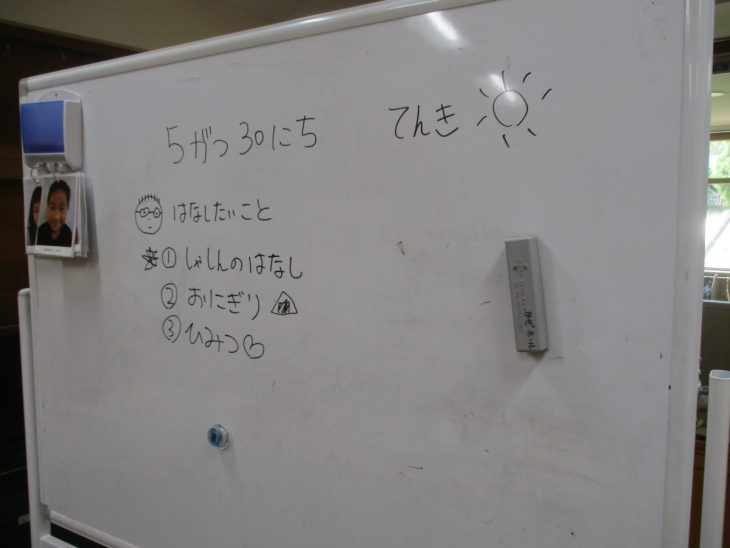 5がつ30にち
てんき
はなしたいこと
①しゃしんのはなし
②おにぎり
③ひみつ♡
ホール